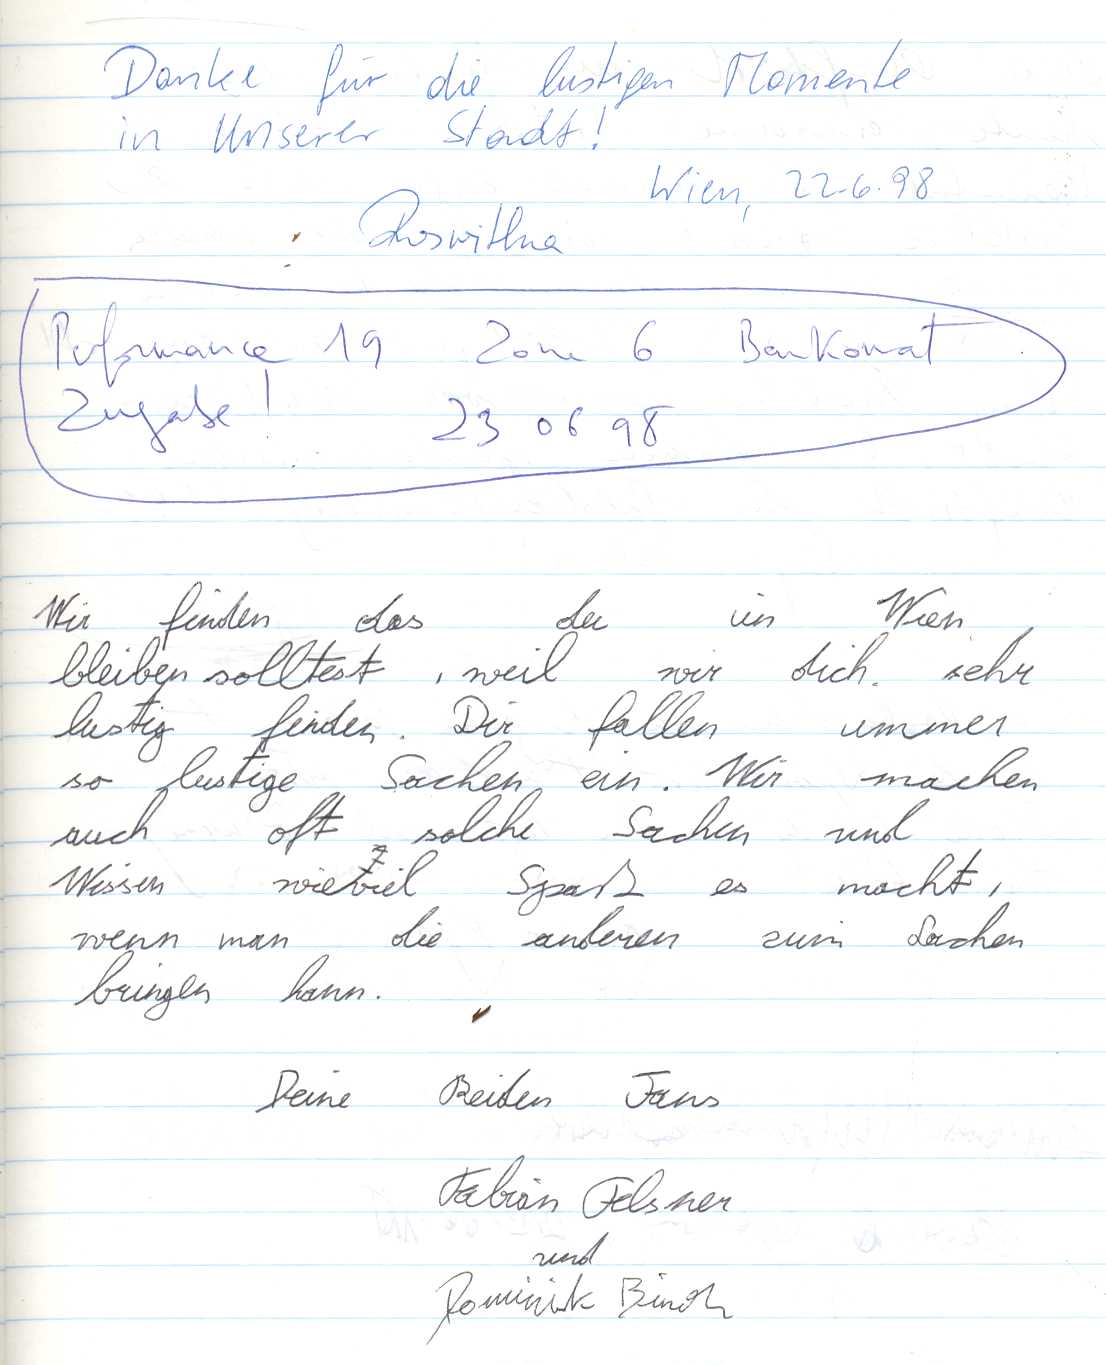 Danke für die lustigen Momente
in Unserer Stadt!
Wien, 22.6.98
Roswitha
Performance 19 Zone 6 Bankomat
Zugabe! 23 06 98
Wir finden das du in Wien
bleiben solltest, weil wir dich sehr
lustig finden. Dir fallen immer
so lustige Sachen ein. Wir machen
auch oft solche Sachen und
Wissen wieviel Spaß es macht,
wenn man die anderen zum Lachen
bringen kann.
Deine Beiden Fans
Fabian Felsner
und
Dominik